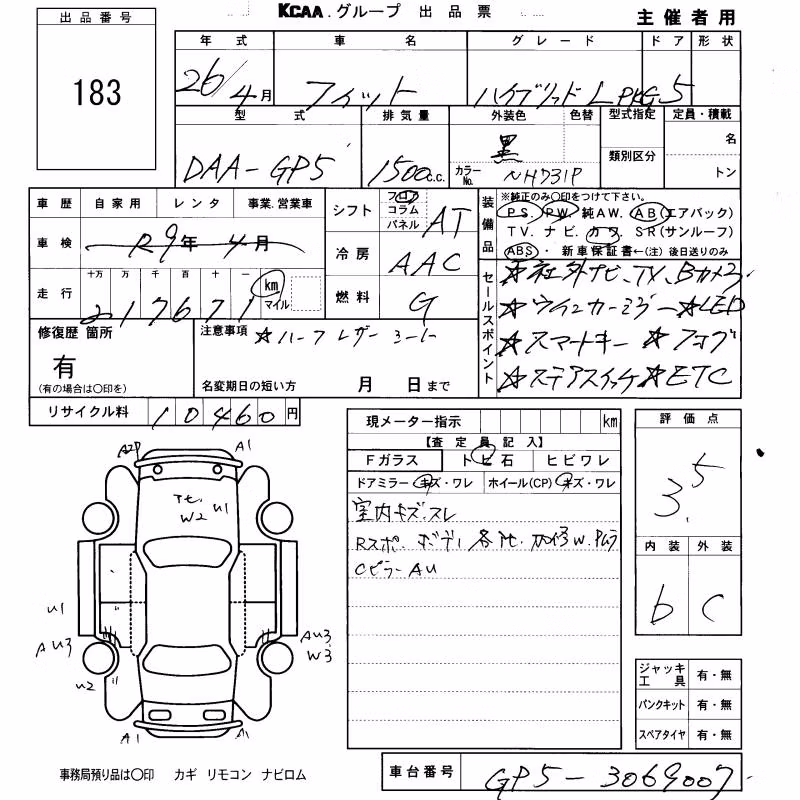 KCAA.グループ 出品票
主催者用
出品番号
183
年式 車名 グレード ドア 形状
26/4月 フィット ハイブリッド L PKG 5
型式 排気量 外装色 色替 型式指定 定員・積載
類別区分 名
DAA-GP5 1500c.c. 黒 カラーNo. NH731P トン
車歴 自家用 レンタ 事業.営業車
車検 R9年 4月
走行 十万 万 千 百 十 一
217671 km マイル
シフト フロア コラム パネル AT
冷房 AAC
燃料 G
装備品
※純正のみ〇印をつけて下さい。
PS. PW. 純AW. AB(エアバック)
TV. ナビ. カワ. SR(サンルーフ)
ABS・新車保証書←(注)後日送りのみ
セールスポイント
☆社外ナビ、TV、Bカメラ
☆ウインカーミラー ☆LED
☆スマートキー ☆フォグ
☆ステアスイッチ ☆ETC
修復歴 箇所
有
(有の場合は〇印を)
注意事項 ☆ハーフレザーシート
名変期日の短い方 月 日まで
リサイクル料 10460円
現メーター指示 km
【査定員記入】
Fガラス トビ石 ヒビワレ
ドアミラー キズ・ワレ ホイール(CP) キズ・ワレ
室内キズ.スレ
Rスポ. ボディ各 加修W.
Cピラー AU
評価点
3.5
内装 外装
b C
ジャッキ工具 有・無
パンクキット 有・無
スペアタイヤ 有・無
A1
U1
W2
U1
AU3
U2
AU3
W3
A1
A1
事務局預り品は〇印 カギ リモコン ナビロム
車台番号 GP5-3069007